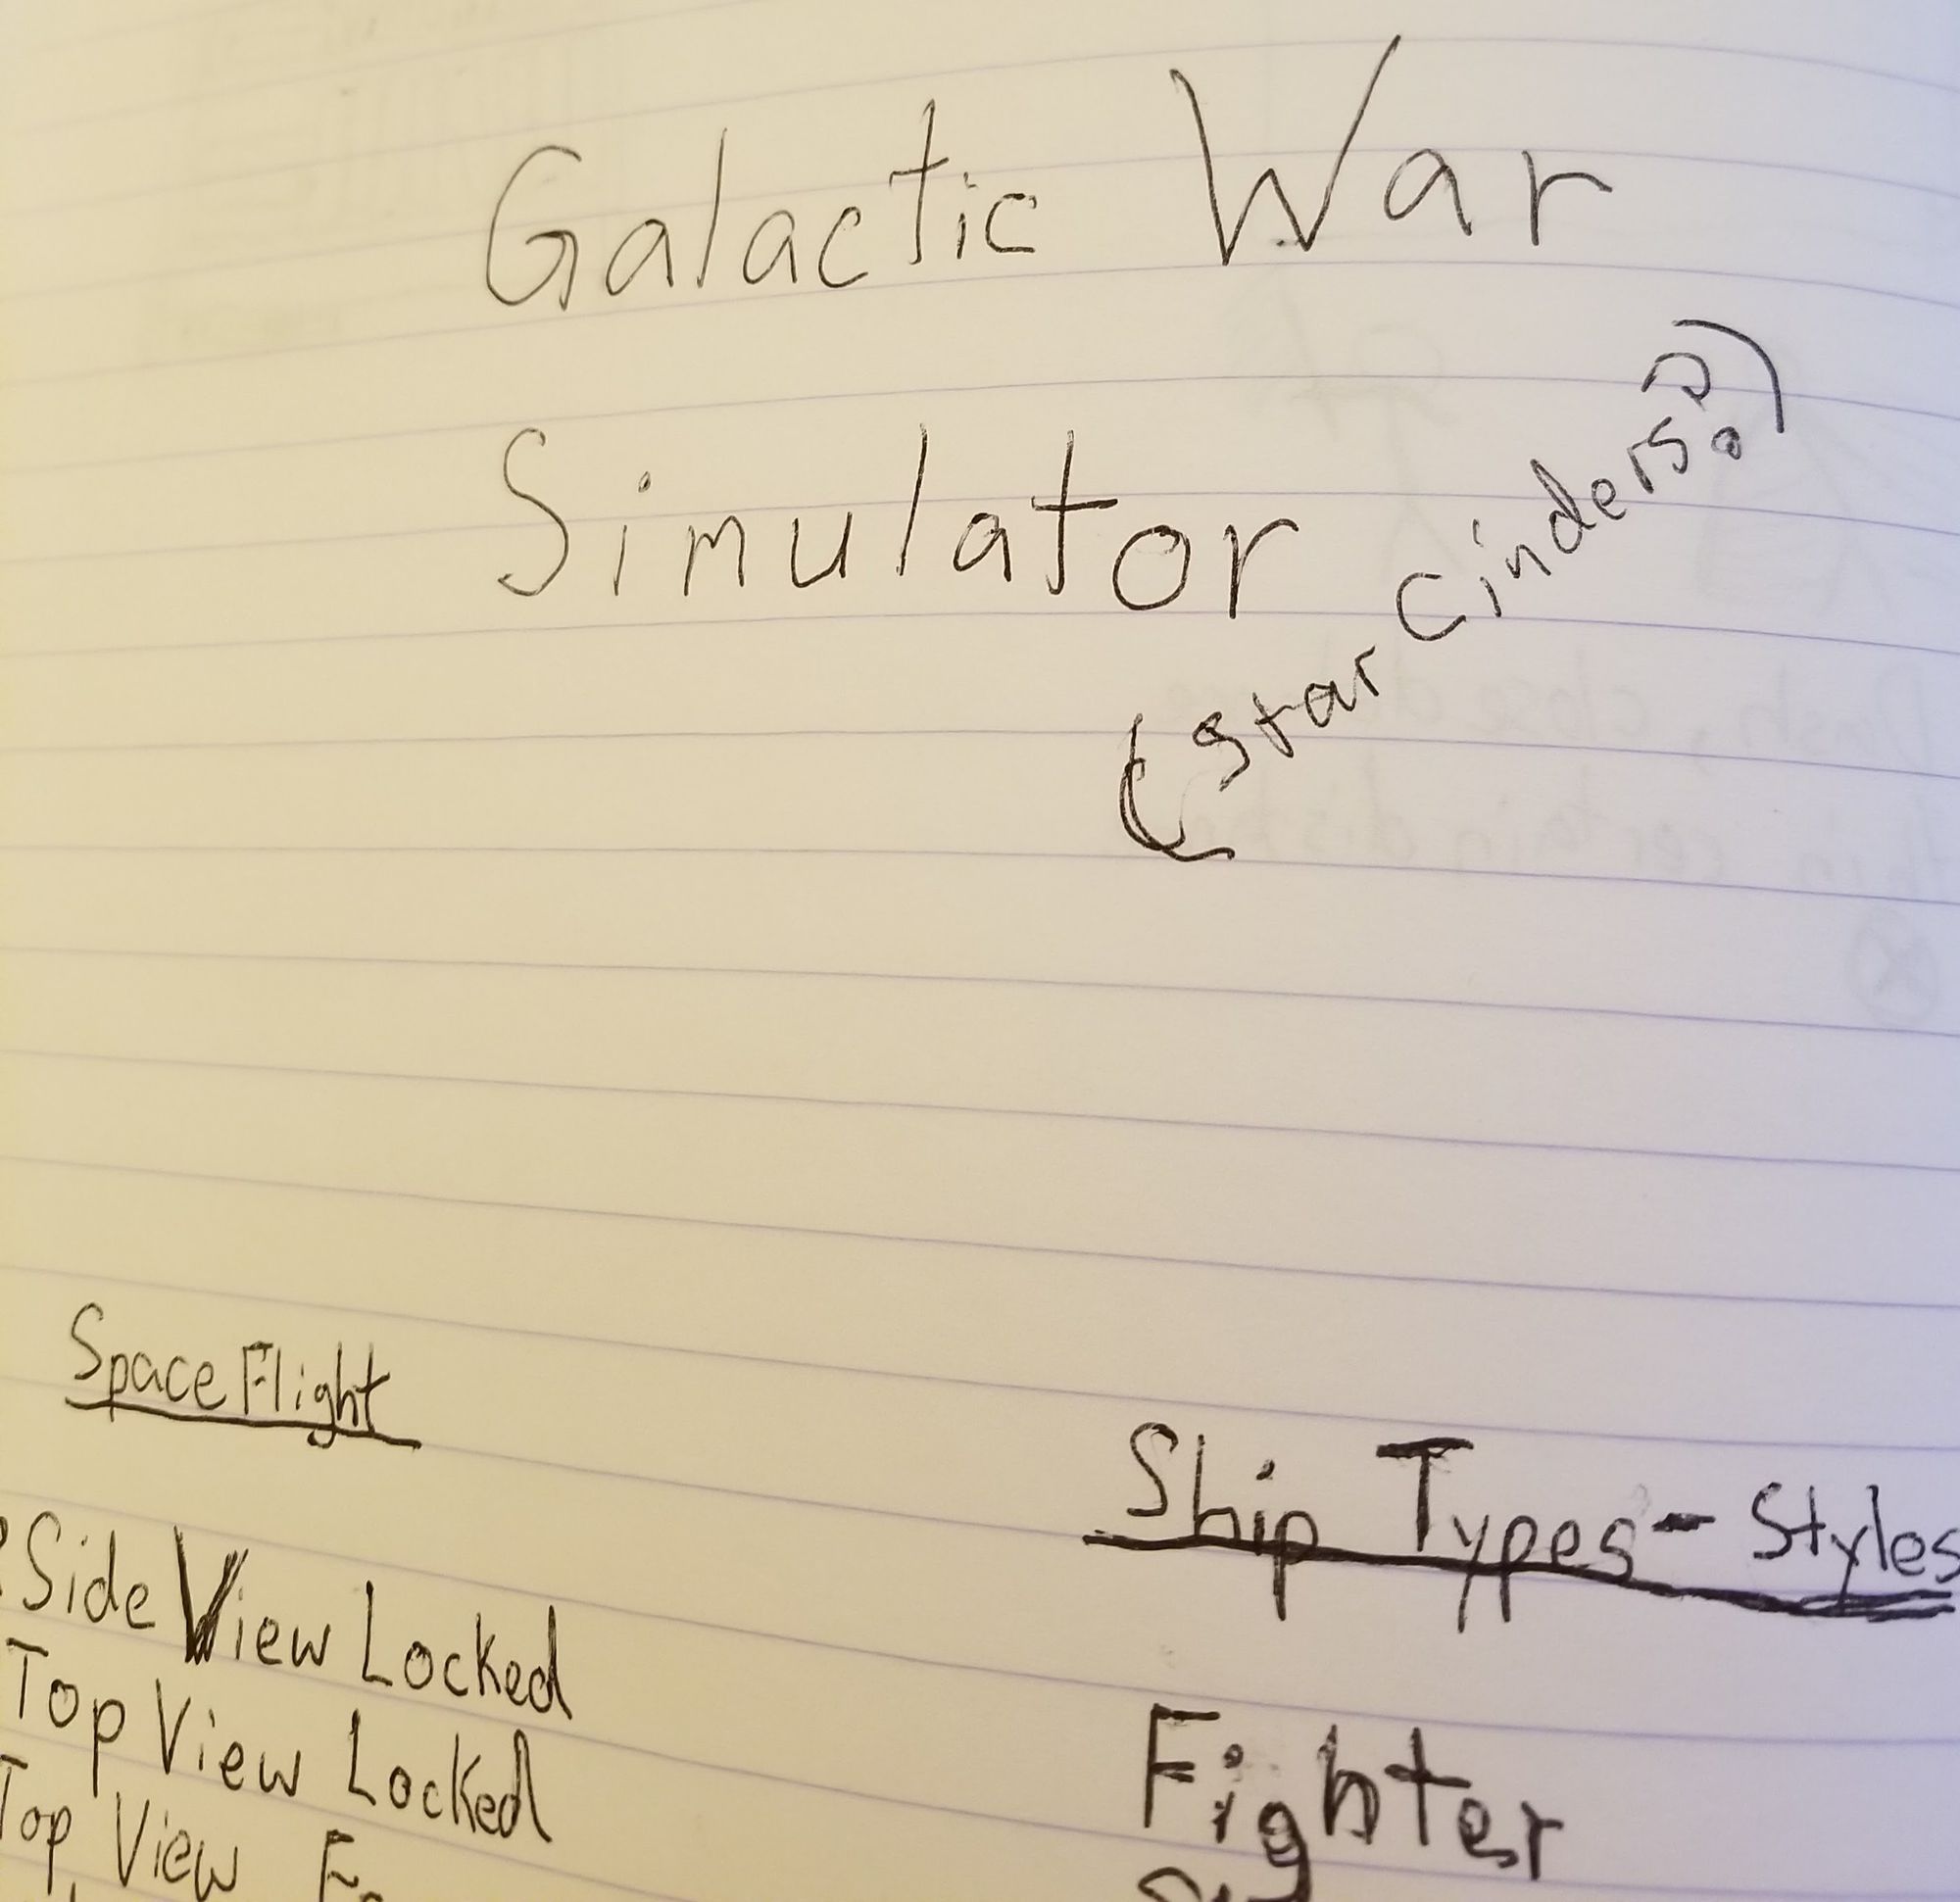 Galactic War
Simulator
(Star Cinders?)
Space Flight
Side View Locked
Top View Locked
Top View
Ship Types - Styles
Fighter